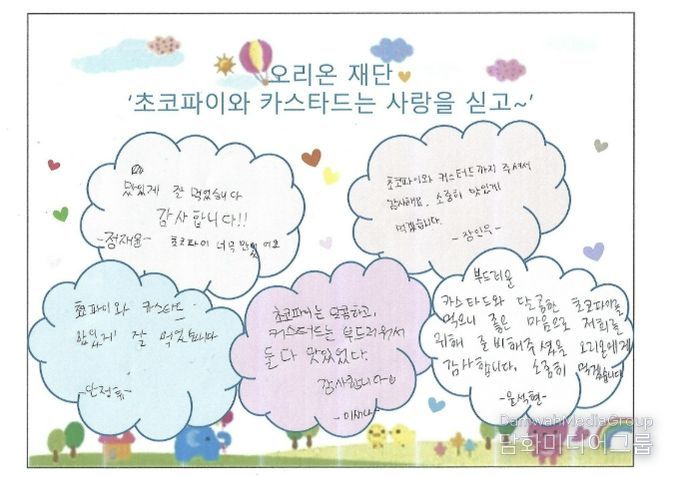 오리온 재단
‘초코파이와 카스타드는 사랑을 싣고~’
맛있게 잘 먹었습니다
감사합니다!!
-정재윤-
초코파이 너무 맛있어요
초코파이와 커스터드까지 주셔서
감사해요. 소중히 맛있게
먹겠습니다.
초코파이와 카스타드
맛있게 잘 먹었습니다
초코파이는 달콤하고,
커스터드는 부드러워서
둘 다 맛있었다.
감사합니다
부드러운
카스타드와 달콤한 초코파이를
먹으니 좋은 마음으로 저희를
위해 준비해주셨을 오리온에게
감사합니다. 소중히 먹겠습니다
-윤석현-
DamwhaMediaGroup
담화미디어그룹